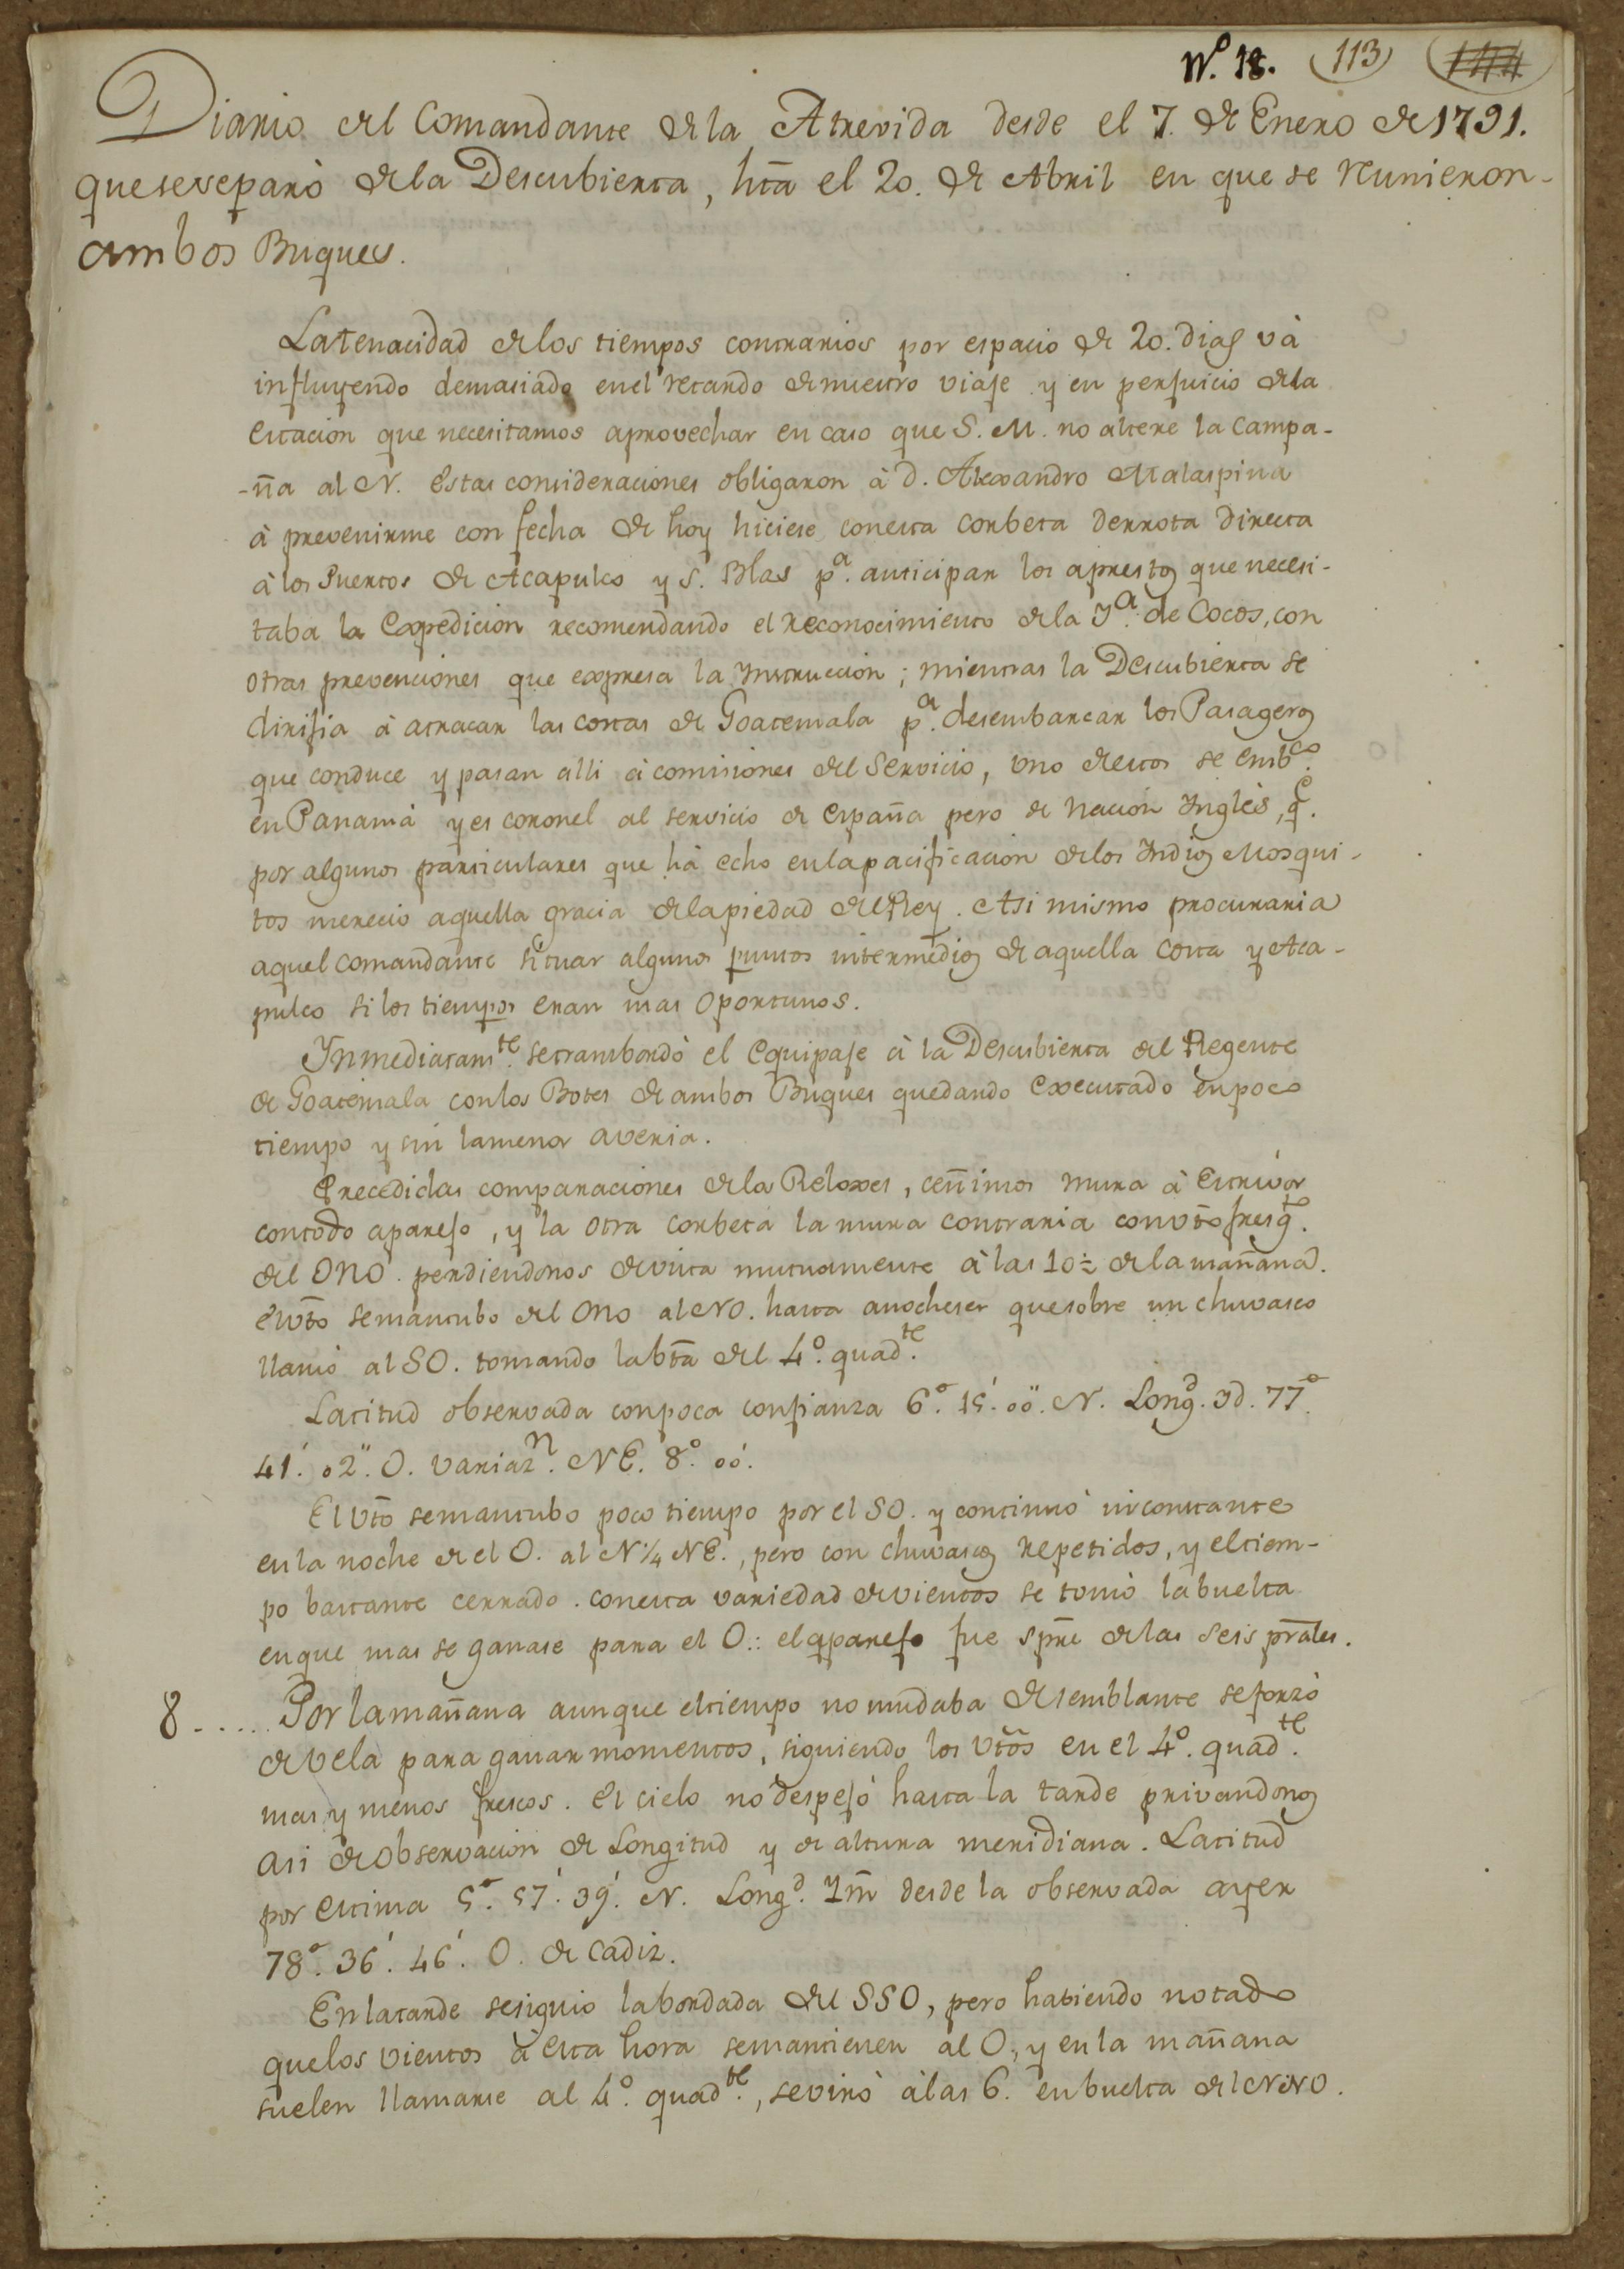 Nº. 18. 113
Diario del Comandante de la Atrevida desde el 7. de Enero de 1791.
que se separò de la Descubierta, hta el 20. de Abril en que se reunieron
ambos Buques.
La tenacidad de los tiempos contrarios por espacio de 20. dias và
influyendo demasiado en el retardo de nuestro viaje y en perjuicio de la
estacion que necesitamos aprovechar en caso que S. M. no altere la campa-
-ña al N. Estas consideraciones obligaron à D. Alexandro Malaspina
à prevenirme con fecha de hoy hiciese con esta corbeta derrota directa
à los Puertos de Acapulco y S. Blas pª. anticipar los aprestos que necesi-
taba la Expedicion recomendando el reconocimiento de la Yª. de Cocos, con
otras prevenciones que expresa la Ynstruccion; mientras la Descubierta se
dirijia à atracar las costas de Goatemala pª. desembarcar los Pasageros
que conduce y pasan alli à comisiones del Servicio, uno de estos se embco.
en Panamà y es coronel al servicio de España pero de nacion Ynglès, q̃.
por algunos particulares que hà echo en la pacificacion de los Yndios Mosqui-
tos mereciò aquella gracia de la piedad del Rey. Asi mismo procuraria
aquel comandante situar algunos puntos intermedios de aquella costa y Aca-
pulco si los tiempos eran mas oportunos.
Ynmediatamte. se transbordò el equipaje à la Descubierta del Regente
de Goatemala con los Botes de ambos Buques quedando executado en poco
tiempo y sin la menor averia.
Precedidas comparaciones de la Reloxes, ceñimos mura à Estrivor
con todo aparejo, y la otra corbeta la mura contraria con vto fresqto.
del ONO. perdiendonos de vista mutuamente à las 10½ de la mañana.
El vto se mantubo del ONO al NO. hasta anocheser que sobre un chuvasco
llamò al SO. tomando la bta del 4º. quadte.
Latitud observada con poca confianza 6º. 15'. 00''. N. Longd. id. 77º
41'. 02''. O. variazn. NE. 8º. 00'.
El vto se mantubo poco tiempo por el SO. y continuò inconstante
en la noche de el O. al N¼NE., pero con chuvascos repetidos, y el tiem-
po bastante cerrado. con esta variedad de vientos se tomò la buelta
en que mas se ganase para el O.: el aparejo fue spre de las seis prales.
8..... Por la mañana aunque el tiempo no mudaba de semblante se forzò
de vela para ganar momentos, siguiendo los vtos en el 4º. quadte.
mas y menos frescos. El cielo no despejò hasta la tarde privandonos
asi de observacion de Longitud y de altura meridiana. Latitud
por estima 5º. 57'. 39'. N. Longd. Ym desde la observada ayer
78º. 36'. 46'. O. de Cadiz.
En la tarde se siguio la bordada del SSO, pero habiendo notado
que los vientos à esta hora se mantienen al O., y en la mañana
suelen llamarse al 4º. quadte., se virò à las 6. en buelta del NNO.